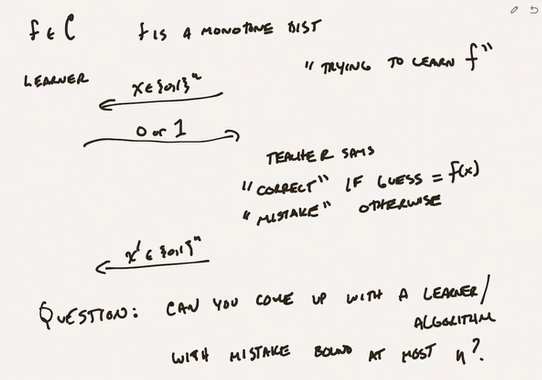 f ∈ C f IS A MONOTONE DIST
"TRYING TO LEARN f"
LEARNER
x ∈ {0,1}ⁿ
0 or 1
TEACHER SAYS
"CORRECT" IF GUESS = f(x)
"MISTAKE" OTHERWISE
x' ∈ {0,1}ⁿ
QUESTION: CAN YOU COME UP WITH A LEARNER/
ALGORITHM
WITH MISTAKE BOUND AT MOST n?